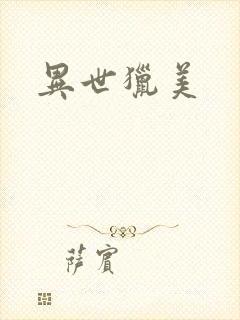 異世獵美
薩賓